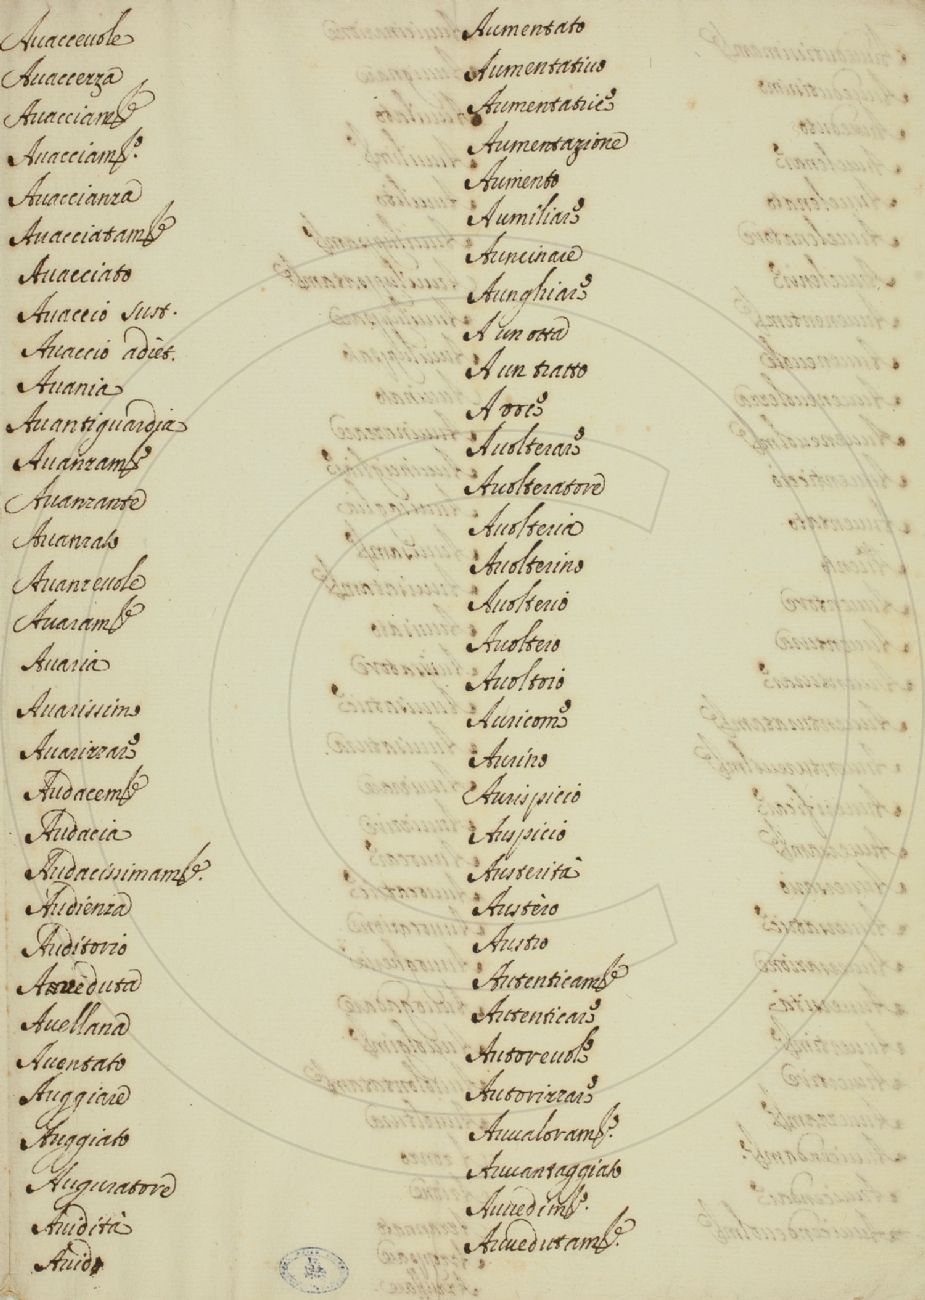 Auacceuole
Auaccezza
Auacciamte
Auacciamto.
Auaccianza
Auacciatamte
Auacciato
Auaccio sust.
Auaccio adiet.
Auania
Auantiguardia
Auanzamto
Auanzante
Auanzato
Auanzeuole
Auaramte
Auaria
Auarissimo
Auarizzare
Audacemte
Audacia
Audacissimamte.
Audienza
Auditorio
Aueduta
Auellana
Auentato
Auggiare
Auggiato
Auguratore
Auidità
Auido
Aumentato
Aumentatiuo
Aumentatrice
Aumentazione
Aumento
Aumiliare
Auncinare
Aunghiare
A un otta
A un tratto
A voce
Auolterare
Auolteratore
Auolteria
Auolterino
Auolterio
Auoltero
Auoltoio
Auricomo
Aurino
Aurispicio
Auspicio
Austerità
Austèro
Austro
Autenticamte
Autenticare
Autoreuole
Autorizzare
Auualoramto.
Auuantaggiato
Auuedimto.
Auuedutamte.